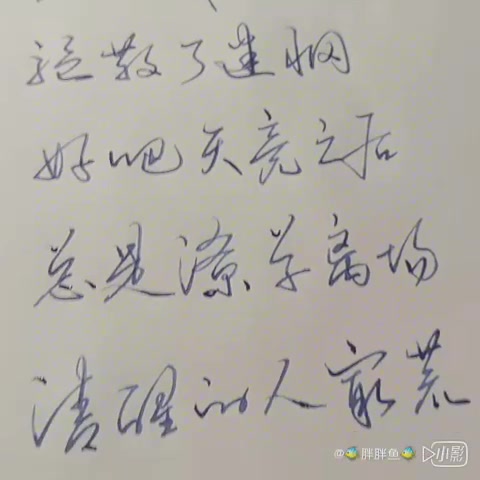 驱散了迷惘
好吧天亮之后
总是潦草离场
清醒的人最荒
@胖胖鱼 小影